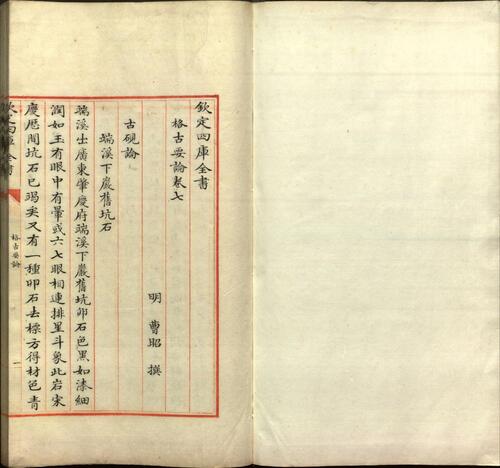 欽定四庫全書
格古要論卷七
明 曹昭 撰
古硯論
端溪下巖舊坑石
端溪出廣東肇慶府端溪下巖舊坑卵石色黑如漆細
潤如玉有眼中有暈或六七眼相連排星斗象此岩宋
慶厯間坑石已竭矣又有一種卵石去𦢊方得材色青
欽定四庫全書
格古要論
一